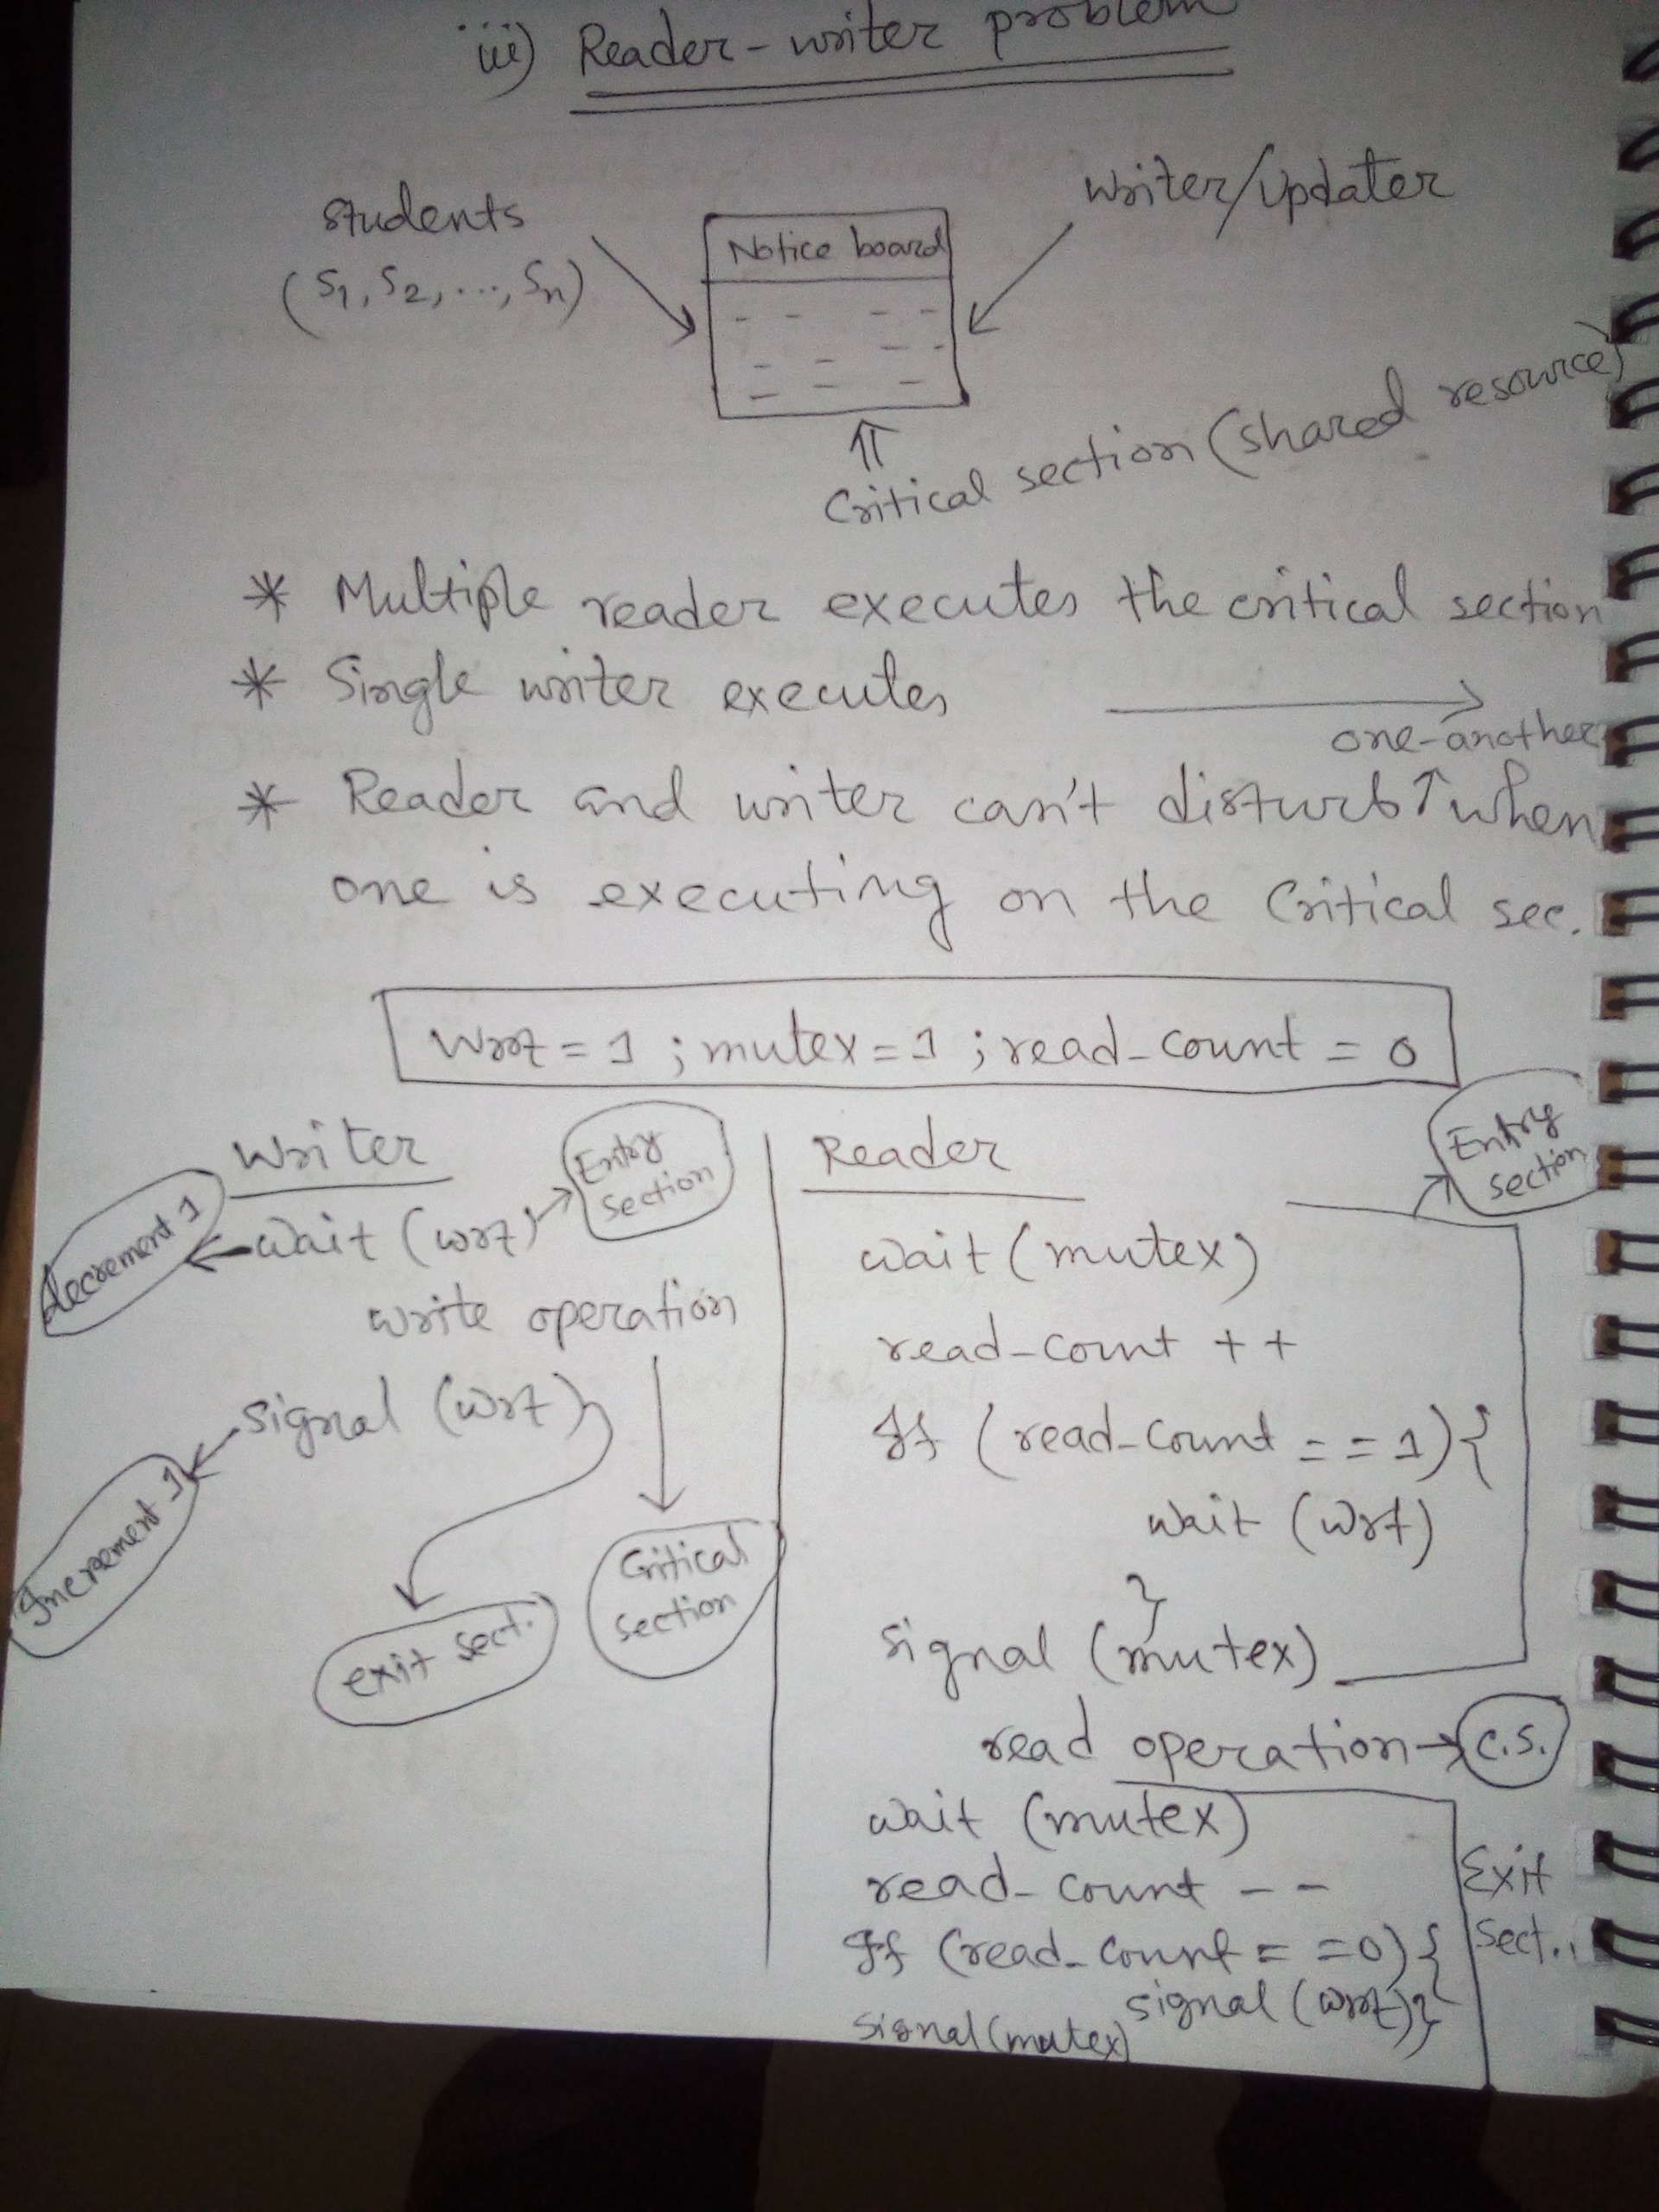 iii) Reader-writer problem
students
(S1, S2, ..., Sn)
Notice board
writer/updater
Critical section (shared resource)
* Multiple reader executes the critical section
* Single writer executes
one-another
* Reader and writer can't disturb ↑ when
one is executing on the critical sec.
wrt = 1 ; mutex = 1 ; read_count = 0
Writer
Entry
section
decrement 1
wait (wrt)
write operation
signal (wrt)
Increment 1
exit sect.
Critical
section
Reader
Entry
section
wait (mutex)
read_count ++
If (read_count == 1) {
wait (wrt)
}
signal (mutex)
read operation → C.S.
wait (mutex)
read_count --
If (read_count == 0) {
signal (wrt) }
signal (mutex)
Exit
sect.